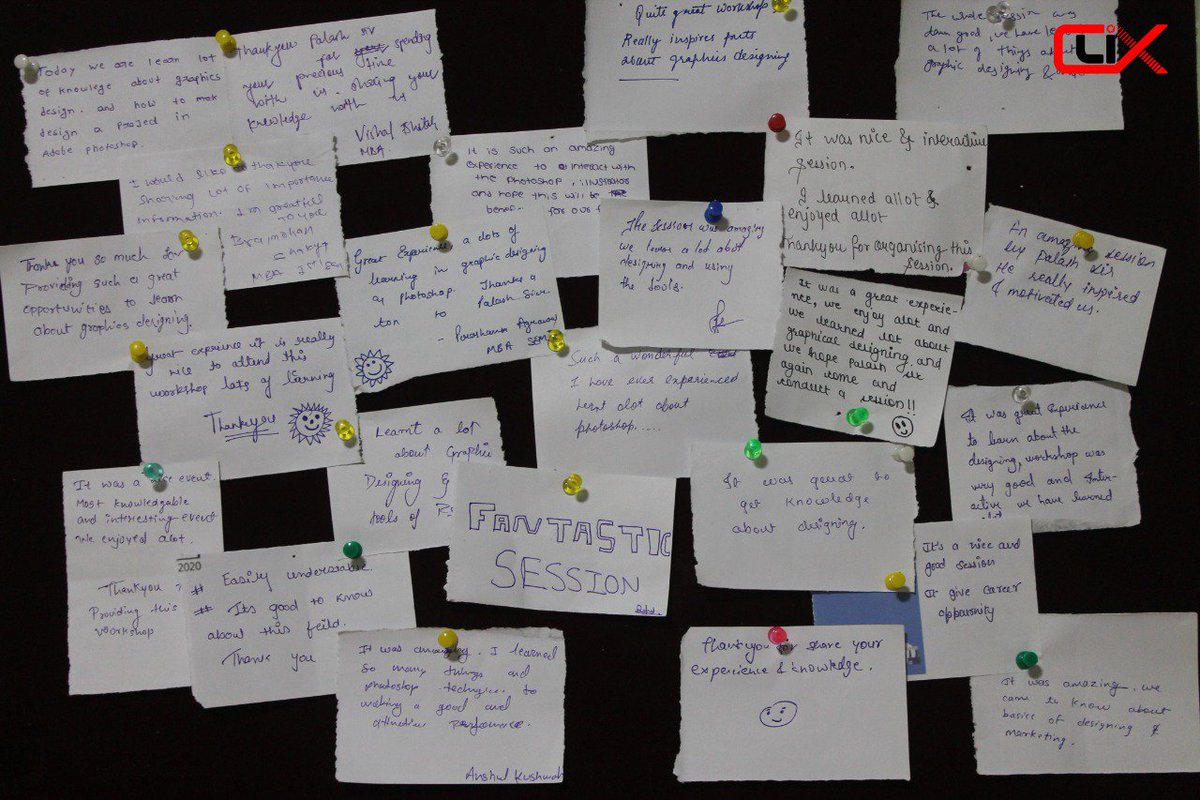 Today we are learn lot
of knowlege about graphics
design. and how to mak
design a project in
Adobe photoshop.
Thankyou Palash sir
for spending
your precious time
with us. sharing your
knowledge with us
Vishal
MBA.
Quite great workshop
Really inspires puts
about graphics designing
The whole session was
damn good, we have le
a lot of things about
graphic designing &
CLiX
I would like to thankyou
sharing lot of importance
information. I'm greatful
to you
Brajmohan
MBA Ist Sem
It is such an amazing
experience to interact with
the photoshop, illustrator
and hope this will be
benef.. for our f
It was nice & interactive
session.
I learned allot &
enjoyed allot
Thankyou for organising this
session.
Thank you so much for
Providing such a great
opportunities to learn
about graphics designing.
Great Experience a lots of
learning in graphic designing
on photoshop. Thanks a
ton to Palash Sir.
- Prashant Agrawal
MBA SEM
The session was amazing
we learn a lot abot
designing and using
the tools.
An amazing session
by Palash sir
He really inspired
& motivated us.
It was a great experie-
nce, we enjoy alot and
we learned lot about
graphical designing, and
we hope Palash sir
again come and
conduct a session!!
great experince it is really
nice to attend this
workshop lots of learning
Thankyou
Such a wonderful
I have ever experienced
lernt alot about
photoshop.....
It was great experience
to learn about the
designing, workshop was
very good and inter-
active we have learned
alot
Learnt a lot
about Graphic
Designing &
tools of
It was a nice event.
Most knowledgable
and interesting event
we enjoyed alot.
Thankyou
Providing this
workshop
2020
FANTASTIC
SESSION
It was great to
get knowledge
about designing.
It's a nice and
good session
it give career
oppurunity
# Easily understable.
# Its good to know
about this feild.
Thank you
It was amazing. I learned
so many things and
photoshop techniques to
making a good and
attractive performance.
Anshul Kushwah
Thankyou for share your
experience & knowledge.
It was amazing, we
came to know about
basics of designing &
marketing.